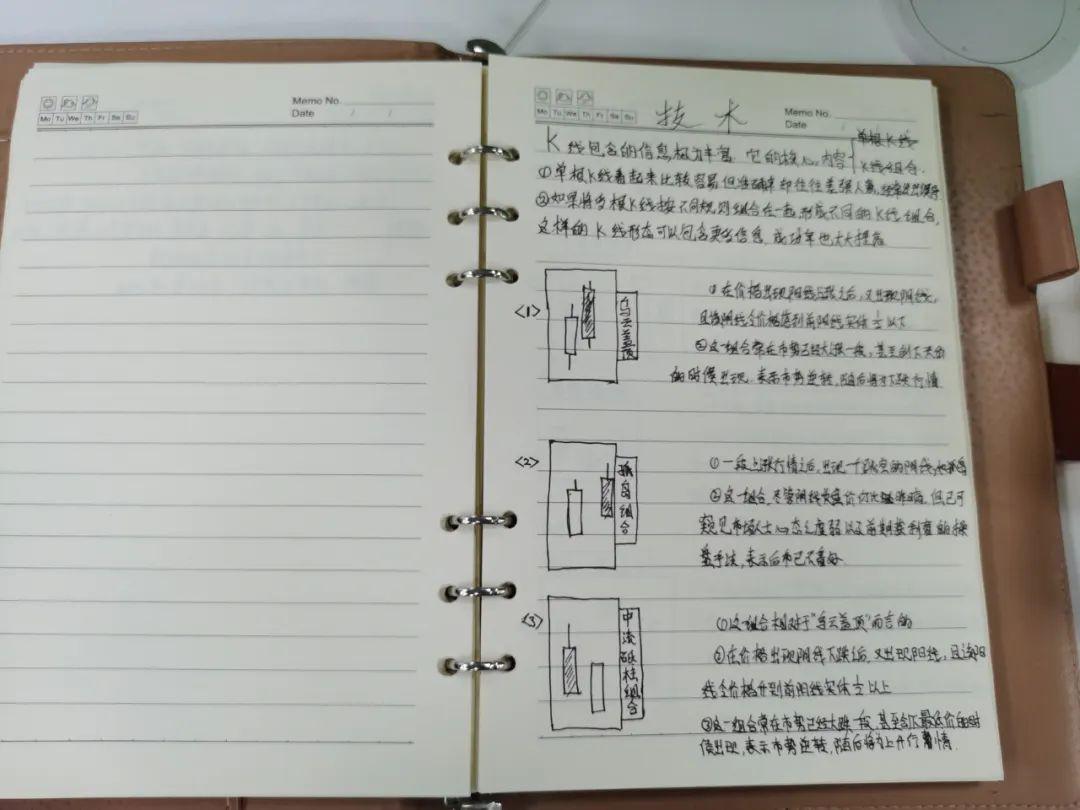 Memo No.
Date / /
Mo Tu We Th Fr Sa Su
Memo No.
Date /
Mo Tu We Th Fr Sa Su
技术
K线包含的信息极为丰富,它的核心内容
单根K线
K线组合.
①单根K线看起来比较容易但准确率却往往差强人意,经常出现误导
②如果将多根K线按不同规则组合在一起,形成不同的K线组合,
这样的K线形态可以包含更多信息,成功率也大大提高
<1>
乌云盖顶
①在价格出现阳线上涨之后,又出现阴线,
且该阴线全价格落到前阳线实体½以下
②这一组合常在市势已经大涨一段,甚至创下天价
的时候出现.表示市势逆转,随后将为下跌行情
<2>
孤岛组合
①一段上涨行情之后,出现一个跌空的阴线,
②这一组合,尽管阴线收盘价仍比 但已可
窥见市场人士心态之虚弱以及前期获利盘的操
盘手法,表示后市已不看好.
<3>
中流砥柱组合
①这组合相对于"乌云盖顶"而言的
②在价格出现阴线下跌之后,又出现阳线,且该阳
线全价格升到前阴线实体½以上
③这一组合常在市势已经大跌一段,甚至创下最低价的时
候出现,表示市势逆转,随后将为上升行 情.